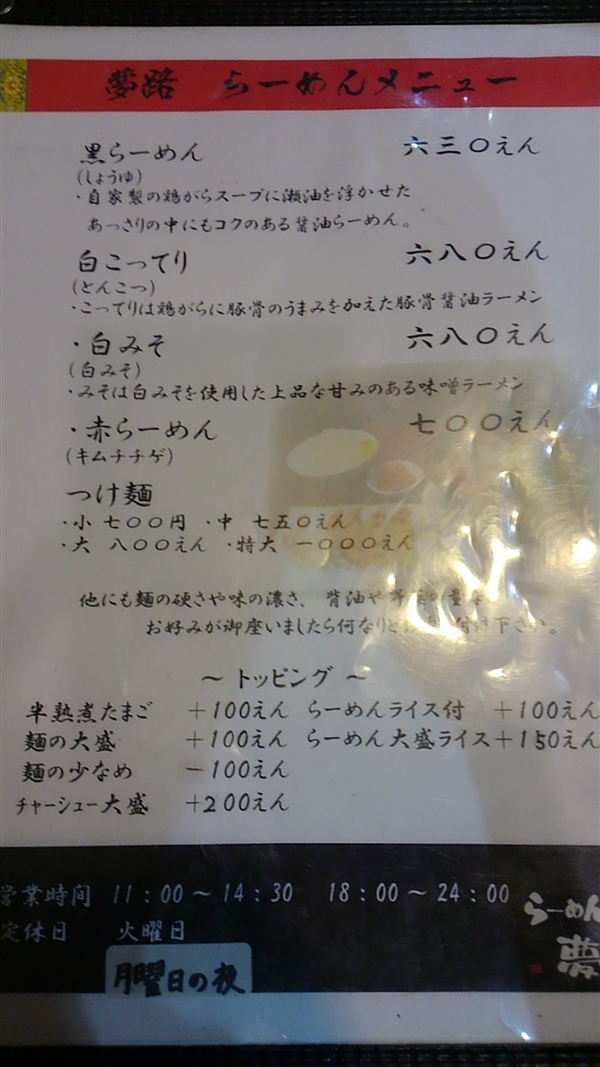 夢路 らーめんメニュー
黒らーめん 六三〇えん
(しょうゆ)
・自家製の鶏がらスープに瀬油を浮かせた
あっさりの中にもコクのある醤油らーめん。
白こってり 六八〇えん
(とんこつ)
・こってりは鶏がらに豚骨のうまみを加えた豚骨醤油ラーメン
・白みそ 六八〇えん
(白みそ)
・みそは白みそを使用した上品な甘みのある味噌ラーメン
・赤らーめん 七〇〇えん
(キムチチゲ)
つけ麺
・小 七〇〇円 ・中 七五〇えん
・大 八〇〇えん ・特大 一〇〇〇えん
他にも麺の硬さや味の濃さ、背油や
お好みが御座いましたら何なりと 下さい。
～ トッピング ～
半熟煮たまご +100えん らーめんライス付 +100えん
麺の大盛 +100えん らーめん大盛ライス+150えん
麺の少なめ -100えん
チャーシュー大盛 +200えん
営業時間 11:00～14:30 18:00～24:00
定休日 火曜日
月曜日の夜
らーめん
夢